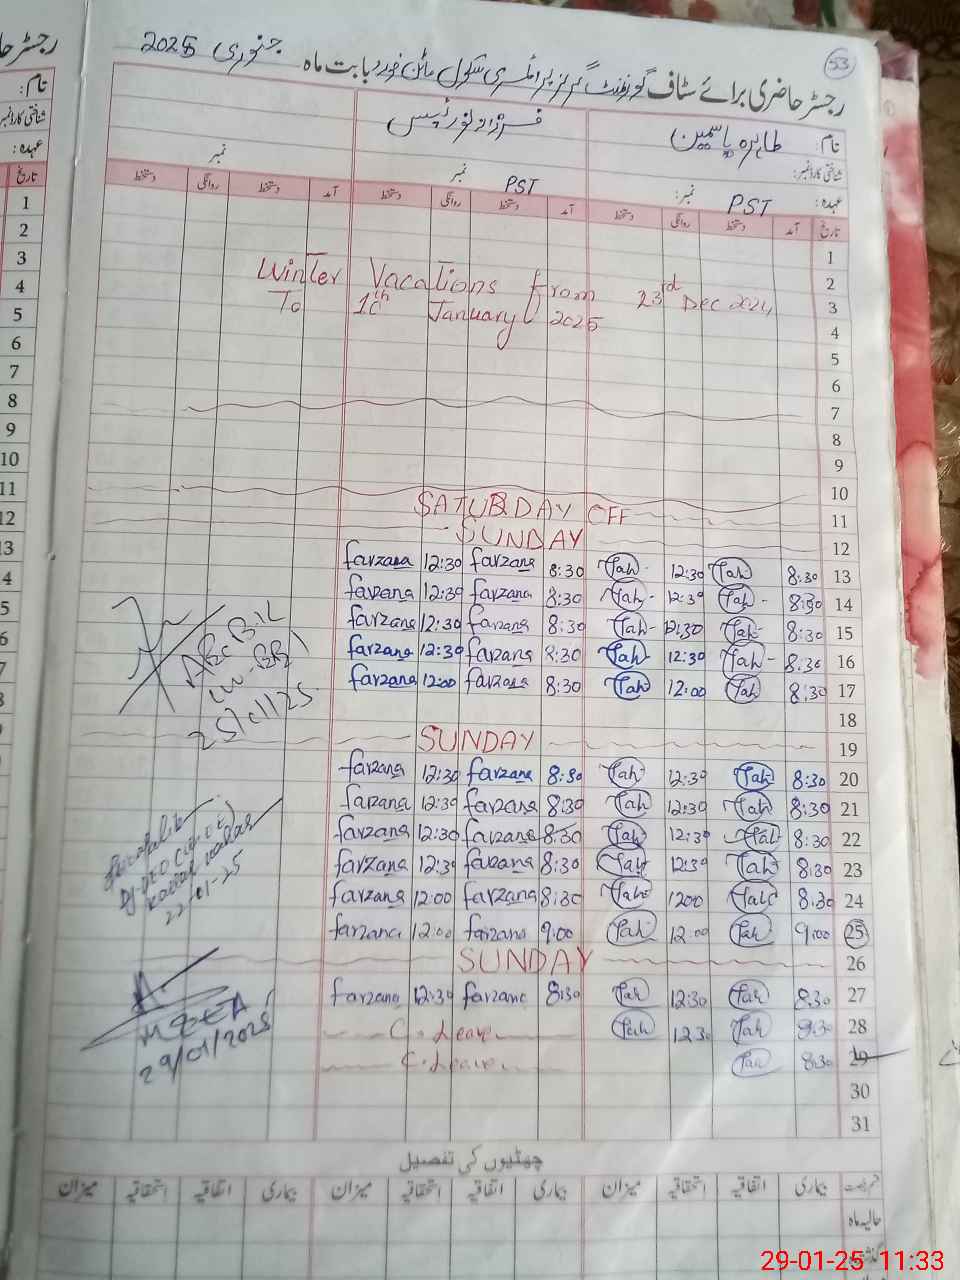 53
رجسٹر حاضری برائے سٹاف گورنمنٹ گرلز پرائمری سکول خورد بابت ماہ جنوری 2025
نام: طاہرہ یاسمین
شناختی کارڈ نمبر:
عہدہ: PST نمبر: PST نمبر نمبر
تاریخ آمد دستخط روانگی دستخط آمد دستخط روانگی دستخط آمد دستخط روانگی دستخط
1
2
3
4
5
6
7
8
9
10
11
12
Winter Vacations from 23rd Dec 2024
To 10th January 2025
SATURDAY OFF
SUNDAY
farzana 12:30 farzana 8:30 Tah 12:30 Tah 8:30 13
farzana 12:30 farzana 8:30 Tah 12:30 Tah 8:30 14
farzana 12:30 farzana 8:30 Tah 12:30 Tah 8:30 15
farzana 12:30 farzana 8:30 Tah 12:30 Tah 8:30 16
farzana 12:00 farzana 8:30 Tah 12:00 Tah 8:30 17
18
SUNDAY 19
farzana 12:30 farzana 8:30 Tah 12:30 Tah 8:30 20
farzana 12:30 farzana 8:30 Tah 12:30 Tah 8:30 21
farzana 12:30 farzana 8:30 Tah 12:30 Tah 8:30 22
farzana 12:30 farzana 8:30 Tah 12:30 Tah 8:30 23
farzana 12:00 farzana 8:30 Tah 1200 Tah 8:30 24
farzana 12:00 farzana 9:00 Tah 12:00 Tah 9:00 25
SUNDAY 26
farzana 12:30 farzana 8:30 Tah 12:30 Tah 8:30 27
C. Leave Tah 12:30 Tah 28
C. Leave Tah 8:30 29
30
31
25/01/25
22-01-25
MEEA
29/01/2025
چھٹیوں کی تفصیل
بیماری اتفاقیہ استحقاقیہ میزان بیماری اتفاقیہ استحقاقیہ میزان بیماری اتفاقیہ استحقاقیہ میزان
حالیہ ماہ
29-01-25 11:33